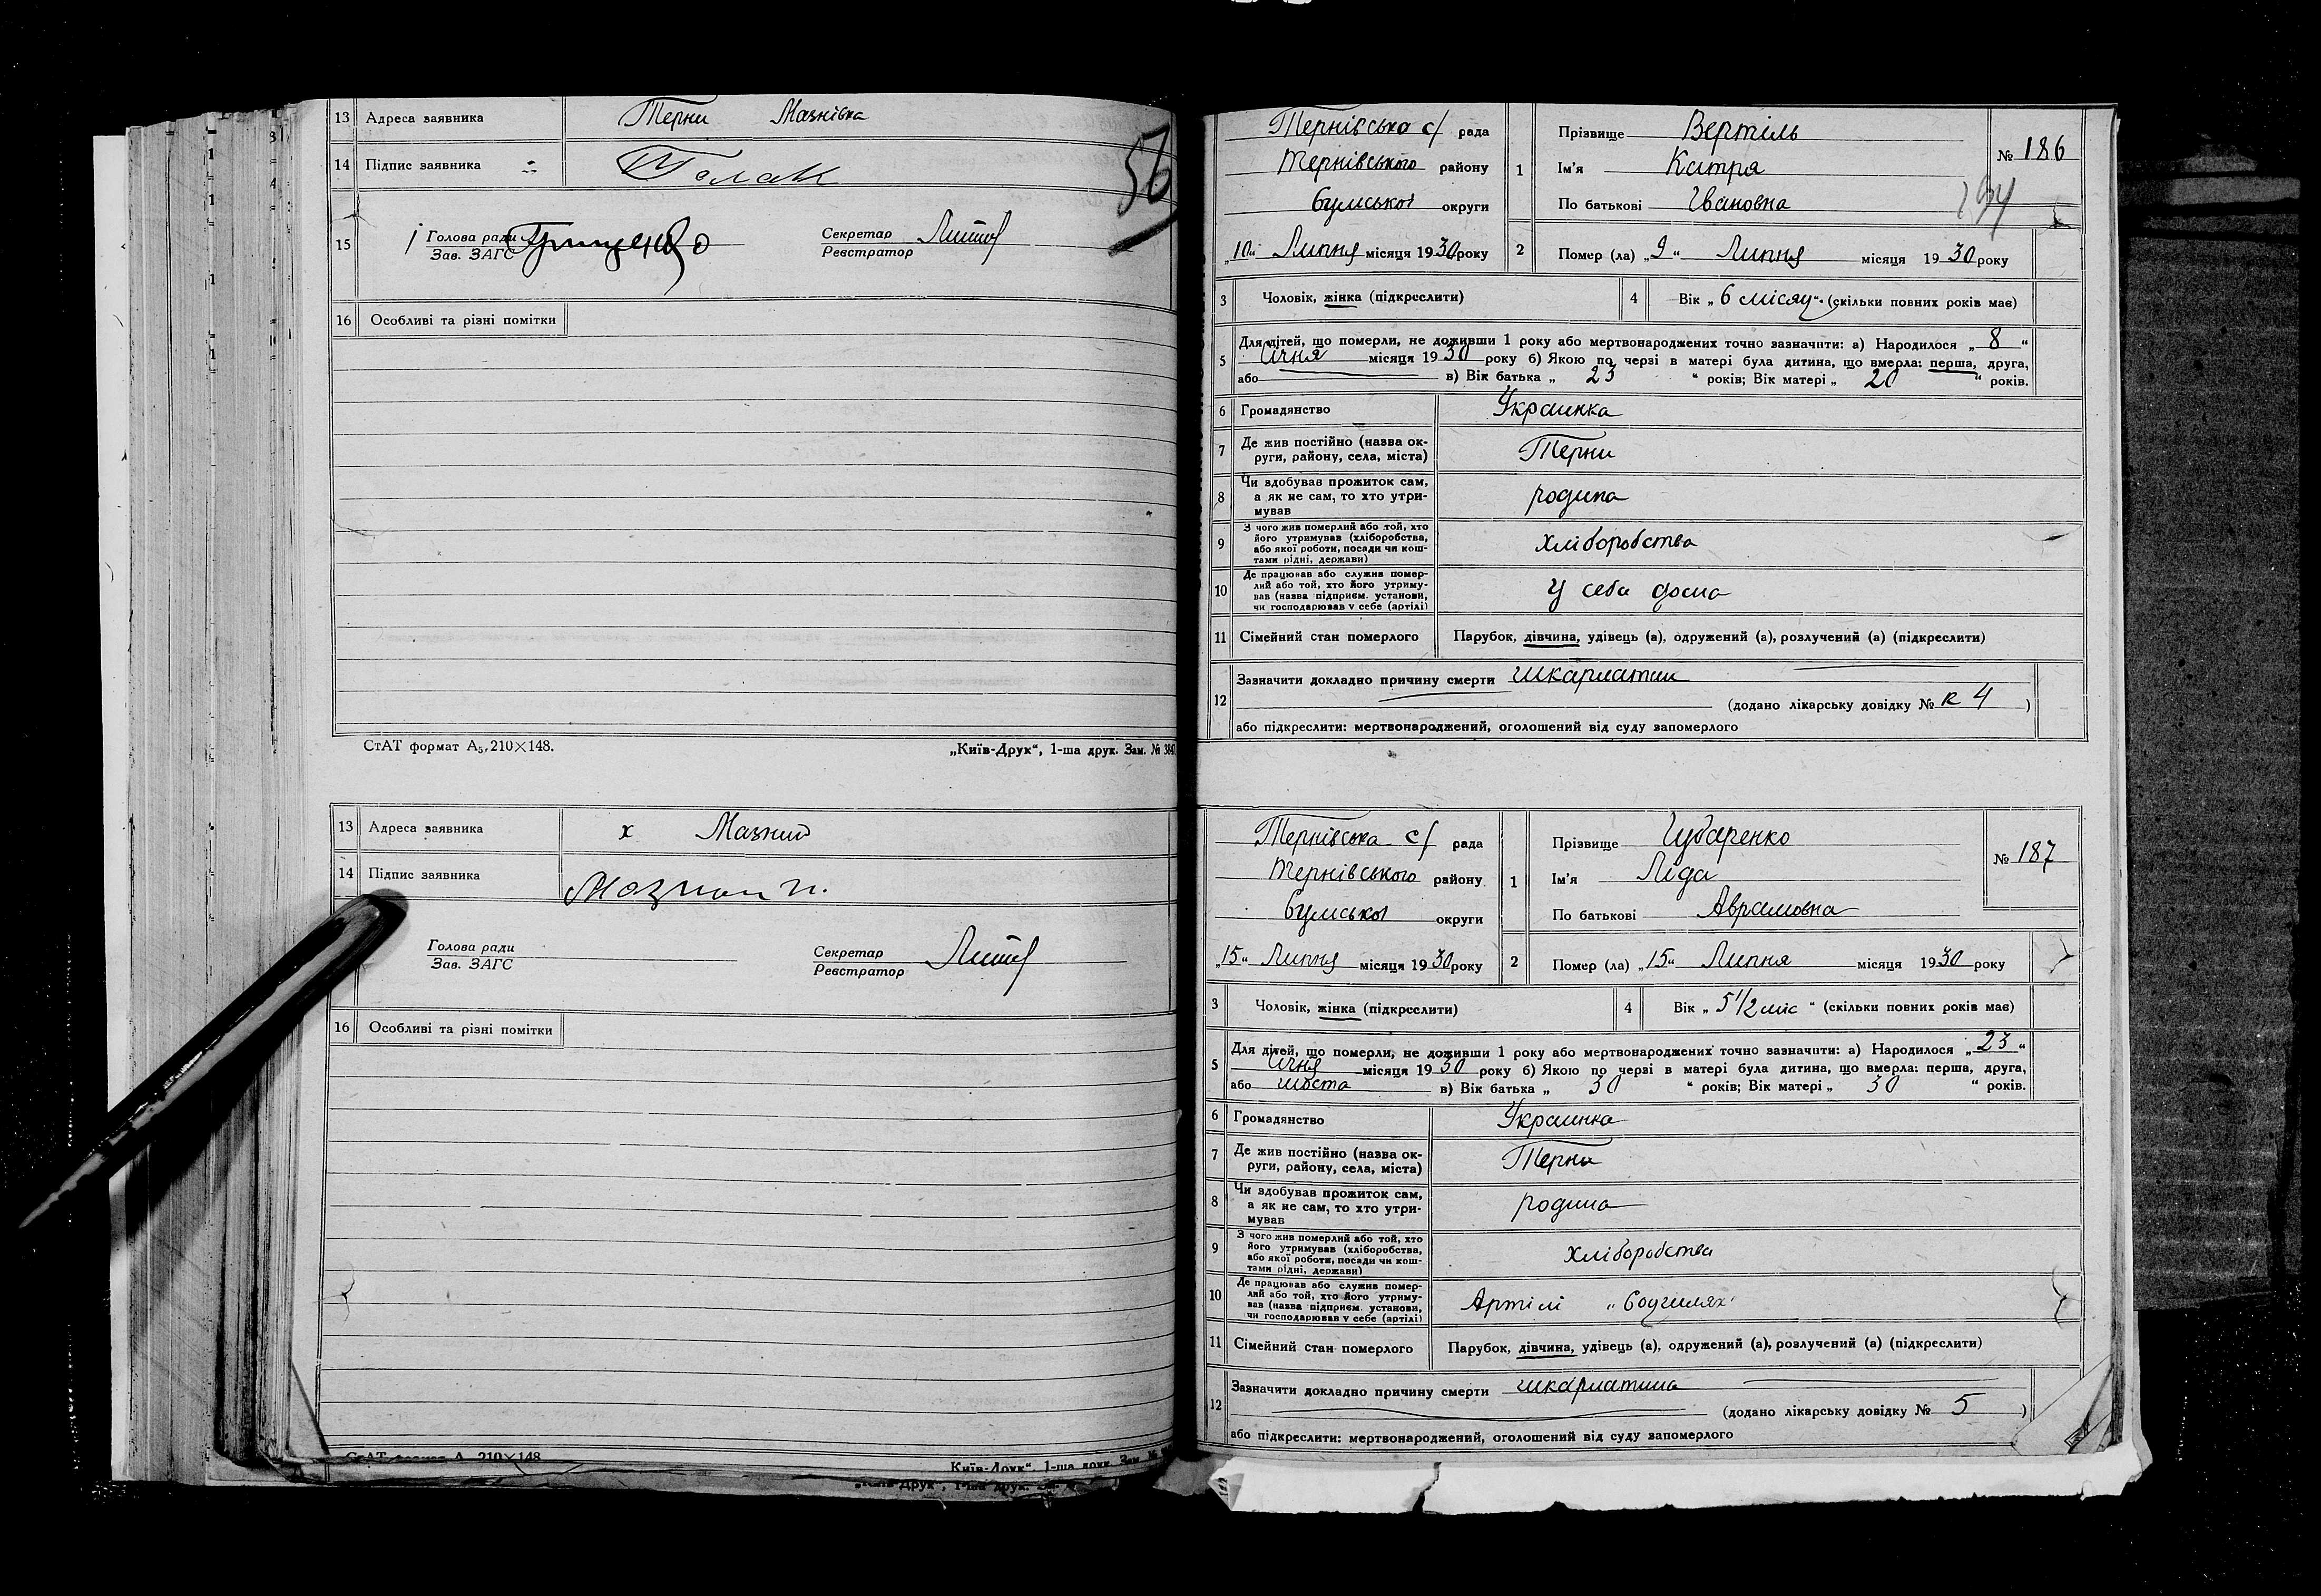 13 Адреса заявника Терни Мазнівка
14 Підпис заявника
56
15 Голова ради Грищенко Секретар
Зав. ЗАГС Реєстратор
16 Особливі та різні помітки
СтАТ формат А₅, 210×148. „Київ-Друк“, 1-ша друк. Зам. №
13 Адреса заявника х Мазний
14 Підпис заявника
Голова ради Секретар
Зав. ЗАГС Реєстратор
16 Особливі та різні помітки
СтАТ формат А 210×148
Київ-Друк“, 1-ша друк. Зам. №
„Київ-Друк“, 1-ша друк.
Тернівська с/ рада
Тернівського району
Сумської округи
„10“ Липня місяця 1930 року
1 Прізвище Вертіль
Ім'я Катря
По батькові Івановна
№ 186
2 Помер (ла) „9“ Липня місяця 1930 року
3 Чоловік, жінка (підкреслити) 4 Вік „6 місяц“ (скільки повних років має)
5 Для дітей, що померли, не доживши 1 року або мертвонароджених точно зазначити: а) Народилося „8“
Січня місяця 1930 року б) Якою по черзі в матері була дитина, що вмерла: перша, друга,
або в) Вік батька „ 23 “ років; Вік матері „ 20 “ років.
6 Громадянство Украинка
7 Де жив постійно (назва ок-
руги, району, села, міста) Терни
8 Чи здобував прожиток сам,
а як не сам, то хто утри-
мував родина
9 З чого жив померлий або той, хто
його утримував (хліборобства,
або якої роботи, посади чи кош-
тами рідні, держави) хліборобства
10 Де працював або служив помер-
лий або той, хто його утриму-
вав (назва підприєм. установи,
чи господарював у себе (артілі) у себа дома
11 Сімейний стан померлого Парубок, дівчина, удівець (а), одружений (а), розлучений (а) (підкреслити)
12 Зазначити докладно причину смерти шкарлатин
(додано лікарську довідку № к 4 )
або підкреслити: мертвонароджений, оголошений від суду запомерлого
Тернівська с/ рада
Тернівського району
Сумської округи
„15“ Липня місяця 1930 року
1 Прізвище Губаренко
Ім'я Ліда
По батькові Аврамовна
№ 187
2 Помер (ла) „15“ Липня місяця 1930 року
3 Чоловік, жінка (підкреслити) 4 Вік „ 5 1/2 міс “ (скільки повних років має)
5 Для дітей, що померли, не доживши 1 року або мертвонароджених точно зазначити: а) Народилося „23“
Січня місяця 1930 року б) Якою по черзі в матері була дитина, що вмерла: перша, друга,
або шоста в) Вік батька „ 30 “ років; Вік матері „ 30 “ років.
6 Громадянство Украинка
7 Де жив постійно (назва ок-
руги, району, села, міста) Терни
8 Чи здобував прожиток сам,
а як не сам, то хто утри-
мував родина
9 З чого жив померлий або той, хто
його утримував (хліборобства,
або якої роботи, посади чи кош-
тами рідні, держави) хліборобства
10 Де працював або служив помер-
лий або той, хто його утриму-
вав (назва підприєм. установи,
чи господарював у себе (артілі) Артілі
11 Сімейний стан померлого Парубок, дівчина, удівець (а), одружений (а), розлучений (а) (підкреслити)
12 Зазначити докладно причину смерти шкарлатина
(додано лікарську довідку № 5 )
або підкреслити: мертвонароджений, оголошений від суду запомерлого